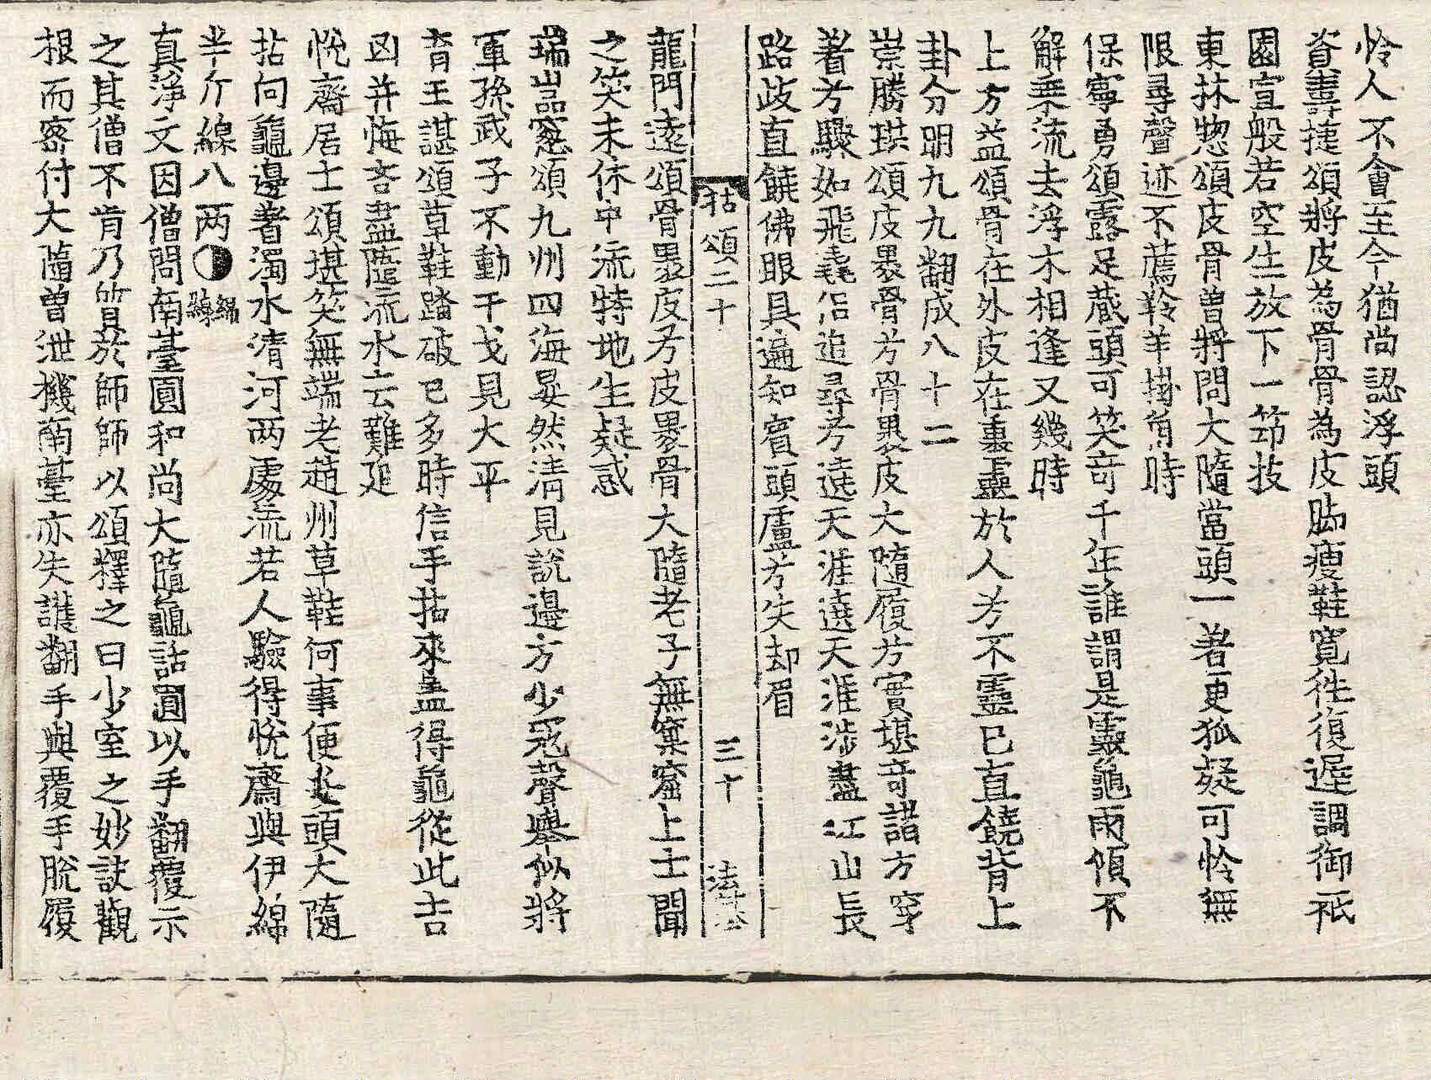 怜人不會至今猶尚認浮頭
資壽捷頌將皮為骨骨為皮脚瘦鞋寬徃復遅調御祇
園宣般若空生放下一笻技
東林惣頌皮骨曾將問大隨當頭一著更狐疑可怜無
限尋聲迹不薦羚羊掛角時
保寧勇頌露足藏頭可笑竒千年誰謂是靈龜雨傾不
解乗流去浮木相逢又幾時
上方益頌骨在外皮在裏靈於人𠔃不靈已直饒背上
卦分明九九翻成八十二
崇勝珙頌皮褁骨𠔃骨褁皮大隨履𠔃實堪竒諸方穿
着𠔃驟如飛毳侶追尋𠔃遶天涯遶天涯涉盡江山長
路歧直饒佛眼具遍知賓頭盧𠔃失却眉
拈頌二十 三十
龍門遠頌骨褁皮𠔃皮褁骨大隨老子無窠窟上士聞
之笑未休中流特地生疑惑
瑞嵓頌九州四海晏然清見說邉方少冦聲擧似將
軍孫武子不動干戈見大平
育王諶頌草鞋踏破已多時信手拈來盖得龜從此吉
凶并悔吝盡隨流水去難追
悅齋居士頌堪笑無端老趙州草鞋何事便安頭大隨
拈向龜邉著濁水清河两處流若人驗得悅齋與伊綿
半斤線八两
真淨文因僧問南臺圓和尚大隨龜話圓以手翻覆示
之其僧不肯乃質於師師以頌釋之曰少室之妙訣觀
根而密付大隨曽泄機南臺亦失護翻手與覆手脫履